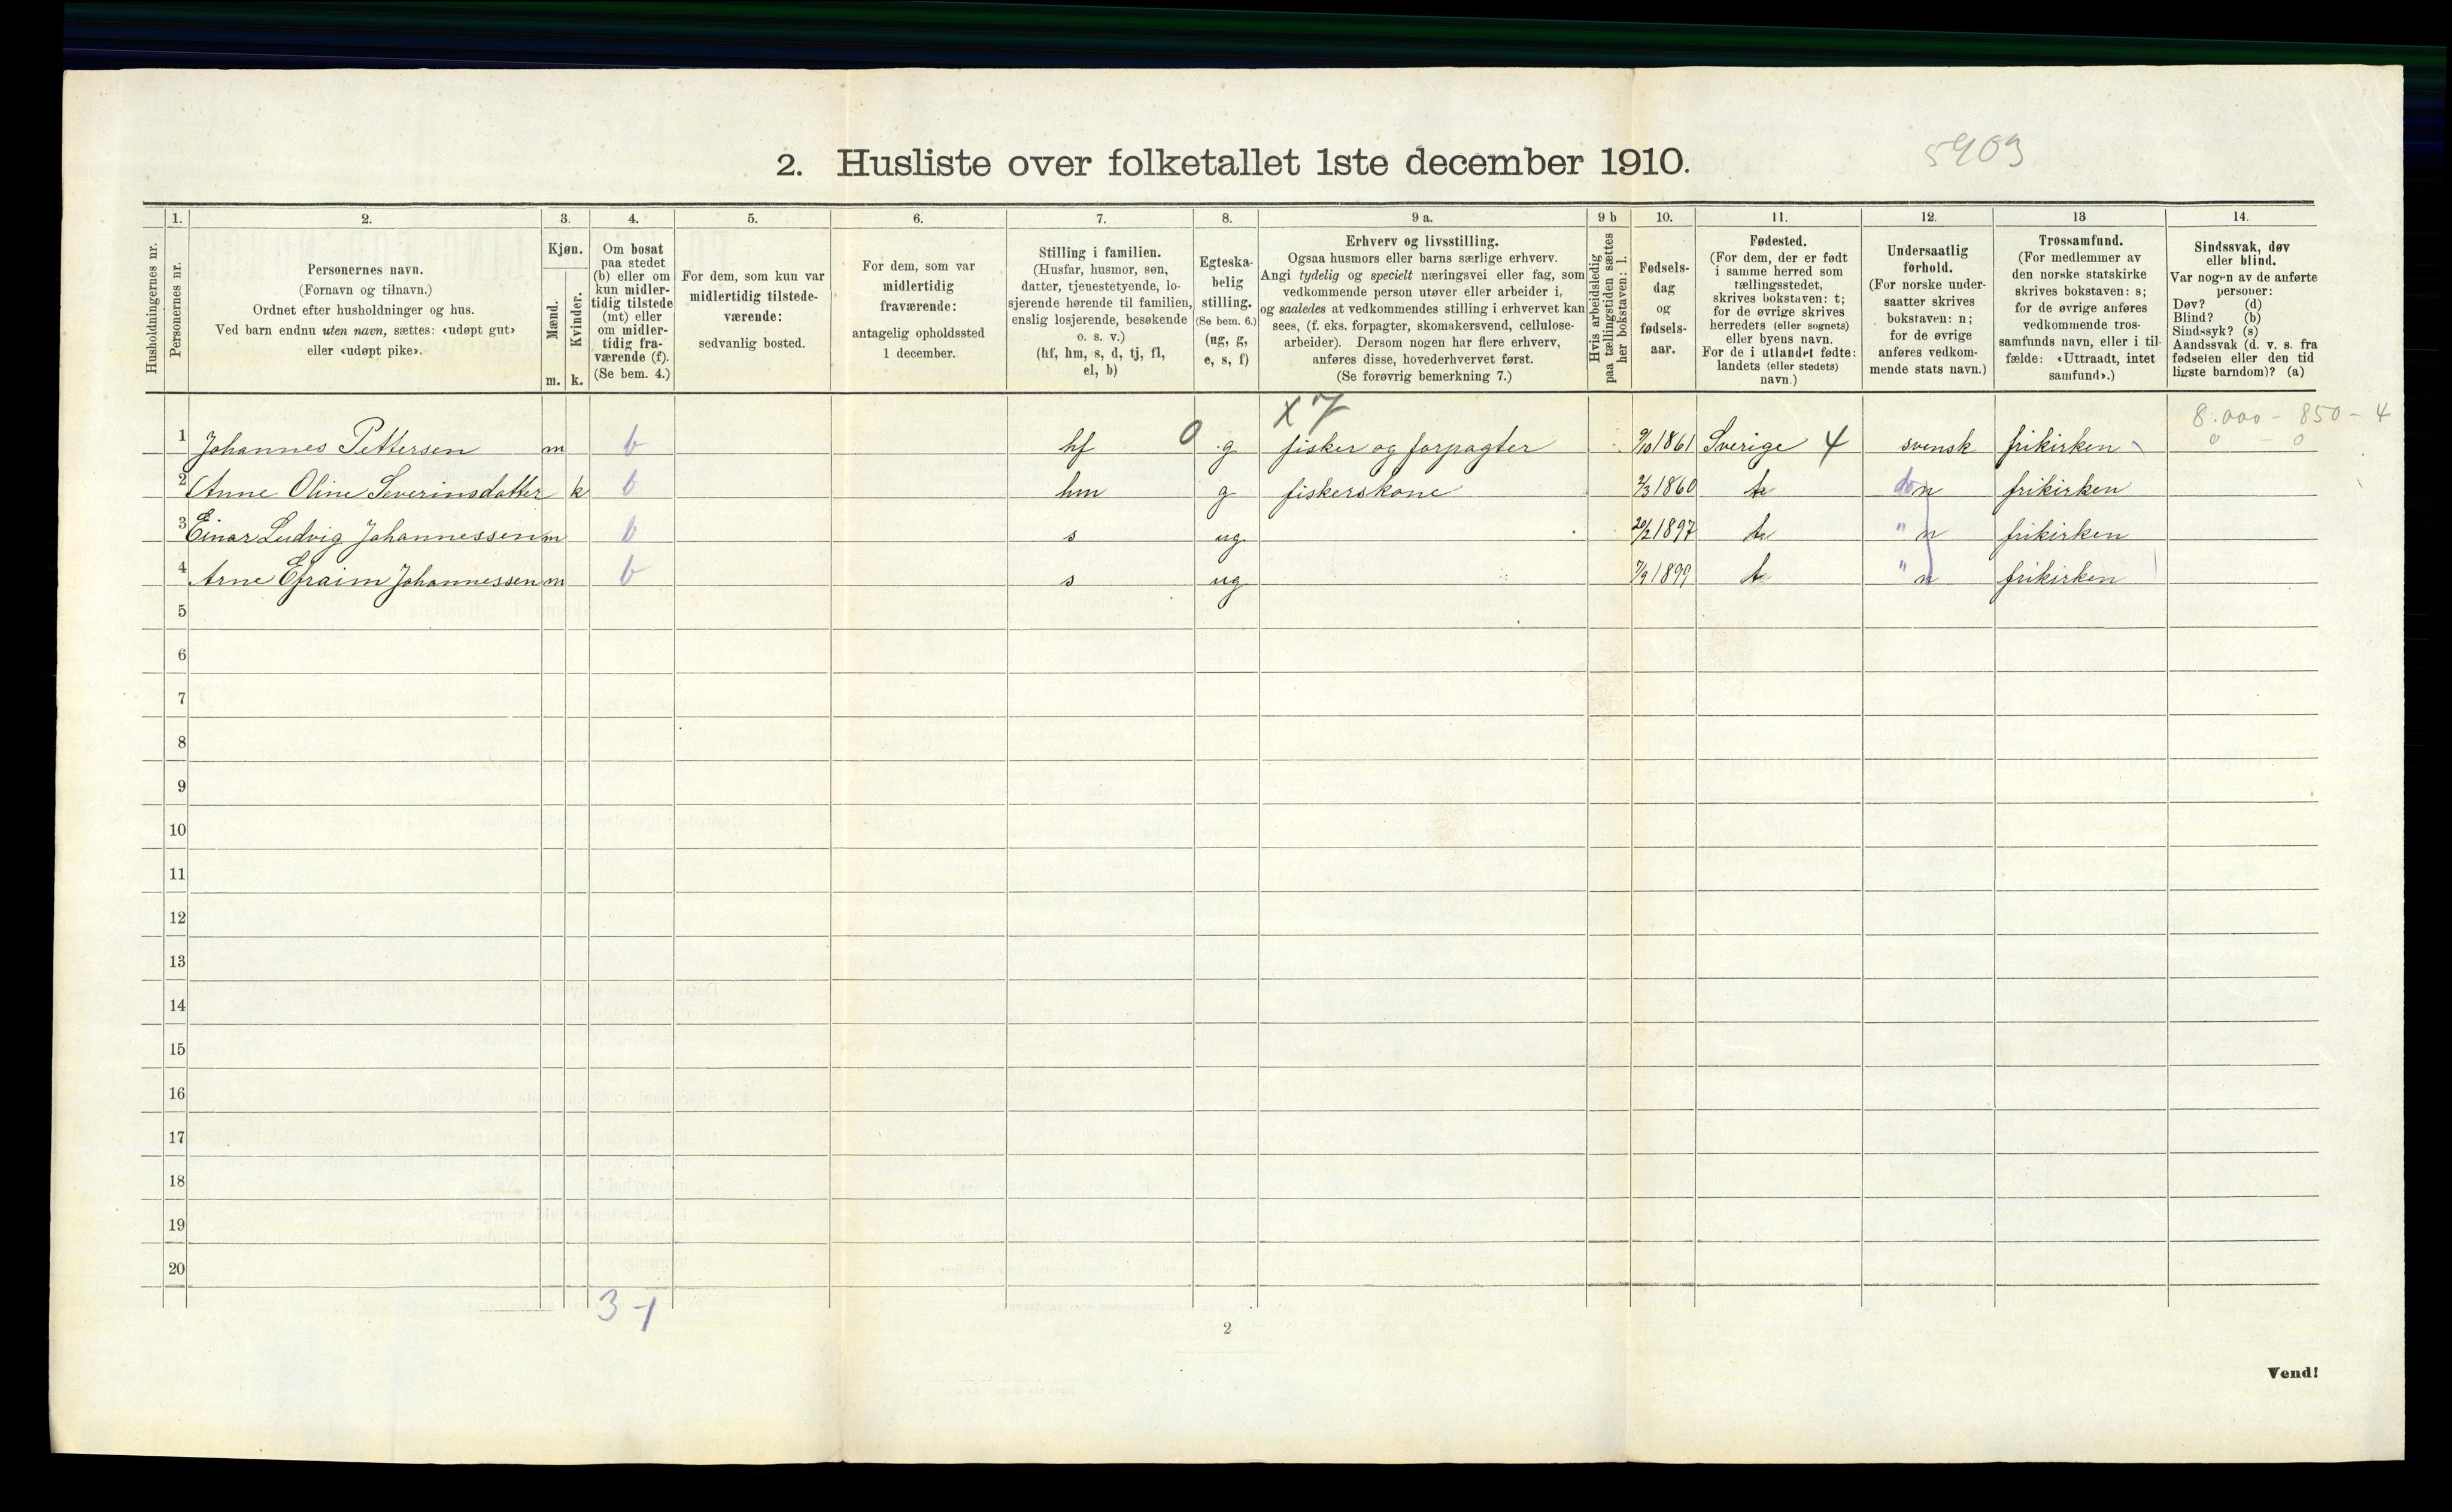 5903
2. Husliste over folketallet 1ste december 1910.
Husholdningernes nr.
1.
Personernes nr.
2.
Personernes navn.
(Fornavn og tilnavn.)
Ordnet efter husholdninger og hus.
Ved barn endnu uten navn, sættes: «udøpt gut»
eller «udøpt pike».
3.
Kjøn.
Mænd.
Kvinder.
m. k.
4.
Om bosat
paa stedet
(b) eller om
kun midler-
tidig tilstede
(mt) eller
om midler-
tidig fra-
værende (f).
(Se bem. 4.)
5.
For dem, som kun var
midlertidig tilstede-
værende:
sedvanlig bosted.
6.
For dem, som var
midlertidig
fraværende:
antagelig opholdssted
1 december.
7.
Stilling i familien.
(Husfar, husmor, søn,
datter, tjenestetyende, lo-
sjerende hørende til familien,
enslig losjerende, besøkende
o. s. v.)
(hf, hm, s, d, tj, fl,
el, b)
8.
Egteska-
belig
stilling.
(Se bem. 6.)
(ug, g,
e, s, f)
9 a.
Erhverv og livsstilling.
Ogsaa husmors eller barns særlige erhverv.
Angi tydelig og specielt næringsvei eller fag, som
vedkommende person utøver eller arbeider i,
og saaledes at vedkommendes stilling i erhvervet kan
sees, (f. eks. forpagter, skomakersvend, cellulose-
arbeider). Dersom nogen har flere erhverv,
anføres disse, hovederhvervet først.
(Se forøvrig bemerkning 7.)
9 b
Hvis arbeidsledig
paa tællingstiden sættes
her bokstaven: l.
10.
Fødsels-
dag
og
fødsels-
aar.
11.
Fødested.
(For dem, der er født
i samme herred som
tællingsstedet,
skrives bokstaven: t;
for de øvrige skrives
herredets (eller sognets)
eller byens navn.
For de i utlandet fødte:
landets (eller stedets)
navn.)
12.
Undersaatlig
forhold.
(For norske under-
saatter skrives
bokstaven: n;
for de øvrige
anføres vedkom-
mende stats navn.)
13
Trossamfund.
(For medlemmer av
den norske statskirke
skrives bokstaven: s;
for de øvrige anføres
vedkommende tros-
samfunds navn, eller i til-
fælde: «Uttraadt, intet
samfund».)
14.
Sindssvak, døv
eller blind.
Var nogen av de anførte
personer:
Døv? (d)
Blind? (b)
Sindssyk? (s)
Aandssvak (d. v. s. fra
fødselen eller den tid
ligste barndom)? (a)
x 7
8.000 - 850 - 4
0 - 0
1 Johannes Pettersen m b hf 0 g fisker og forpagter 9/10 1861 Sverige 4 svensk frikirken
2 Anne Oline Severinsdatter k b hm g fiskerskone 2/3 1860 t do n frikirken
3 Einar Ludvig Johannessen m b s ug 20/2 1897 t " n frikirken
4 Arne Efraim Johannessen m b s ug 7/9 1899 t " n frikirken
5
6
7
8
9
10
11
12
13
14
15
16
17
18
19
20
3-1
2
Vend!